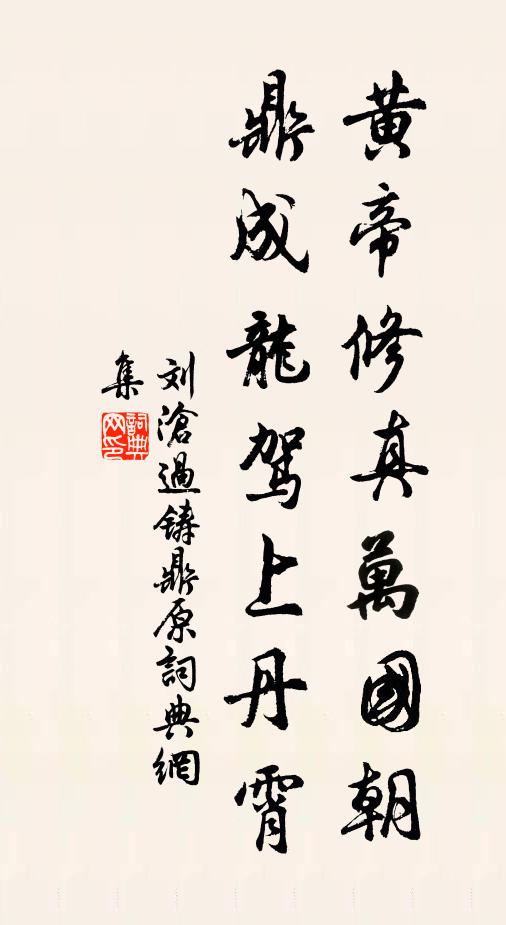 黄帝修真萬國朝
鼎成龍駕上丹霄
刘滄過鑄鼎原詞典網
集
詞典網印